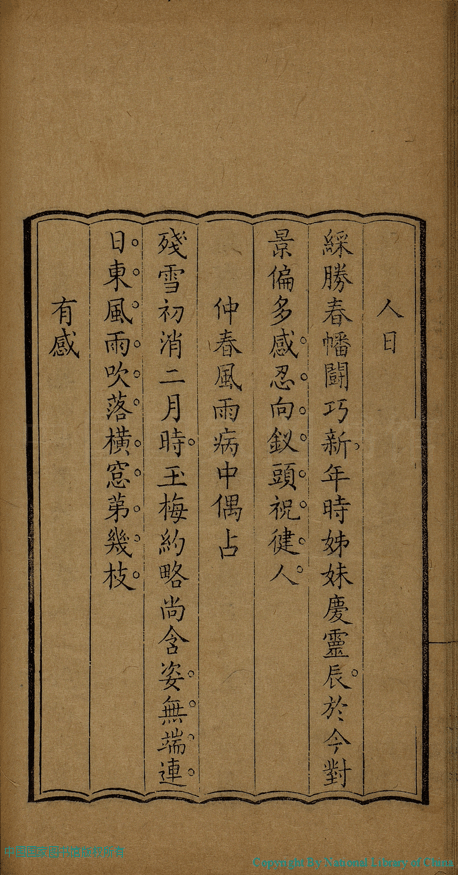 人日
綵勝春幡鬪巧新。年時姊妹慶靈辰。於今對
景偏多感。忍向釵頭祝健人。
仲春風雨病中偶占
殘雪初消二月時。玉梅約略尚含姿。無端連
日東風雨。吹落橫窻第幾枝。
有感
Copyright By National Library of China